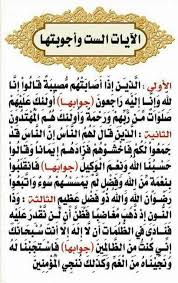 الآيات الست وأجوبتها
الأولى : الَّذِينَ إِذَا أَصَابَتْهُم مُّصِيبَةٌ قَالُوا إِنَّا
لِلَّهِ وَإِنَّا إِلَيْهِ رَاجِعُونَ (جوابها) أُولَئِكَ عَلَيْهِمْ
صَلَوَاتٌ مِّن رَّبِّهِمْ وَرَحْمَةٌ وَأُولَئِكَ هُمُ الْمُهْتَدُونَ
الثانية : الَّذِينَ قَالَ لَهُمُ النَّاسُ إِنَّ النَّاسَ قَدْ
جَمَعُوا لَكُمْ فَاخْشَوْهُمْ فَزَادَهُمْ إِيمَانًا وَقَالُوا
حَسْبُنَا اللَّهُ وَنِعْمَ الْوَكِيلُ (جوابها) فَانقَلَبُوا
بِنِعْمَةٍ مِّنَ اللَّهِ وَفَضْلٍ لَّمْ يَمْسَسْهُمْ سُوءٌ وَاتَّبَعُوا
رِضْوَانَ اللَّهِ وَاللَّهُ ذُو فَضْلٍ عَظِيمٍ الثالثة : وَذَا
النُّونِ إِذ ذَّهَبَ مُغَاضِبًا فَظَنَّ أَن لَّن نَّقْدِرَ عَلَيْهِ
فَنَادَى فِي الظُّلُمَاتِ أَن لَّا إِلَهَ إِلَّا أَنتَ سُبْحَانَكَ
إِنِّي كُنتُ مِنَ الظَّالِمِينَ (جوابها) فَاسْتَجَبْنَا لَهُ
وَنَجَّيْنَاهُ مِنَ الْغَمِّ وَكَذَلِكَ نُنجِي الْمُؤْمِنِينَ